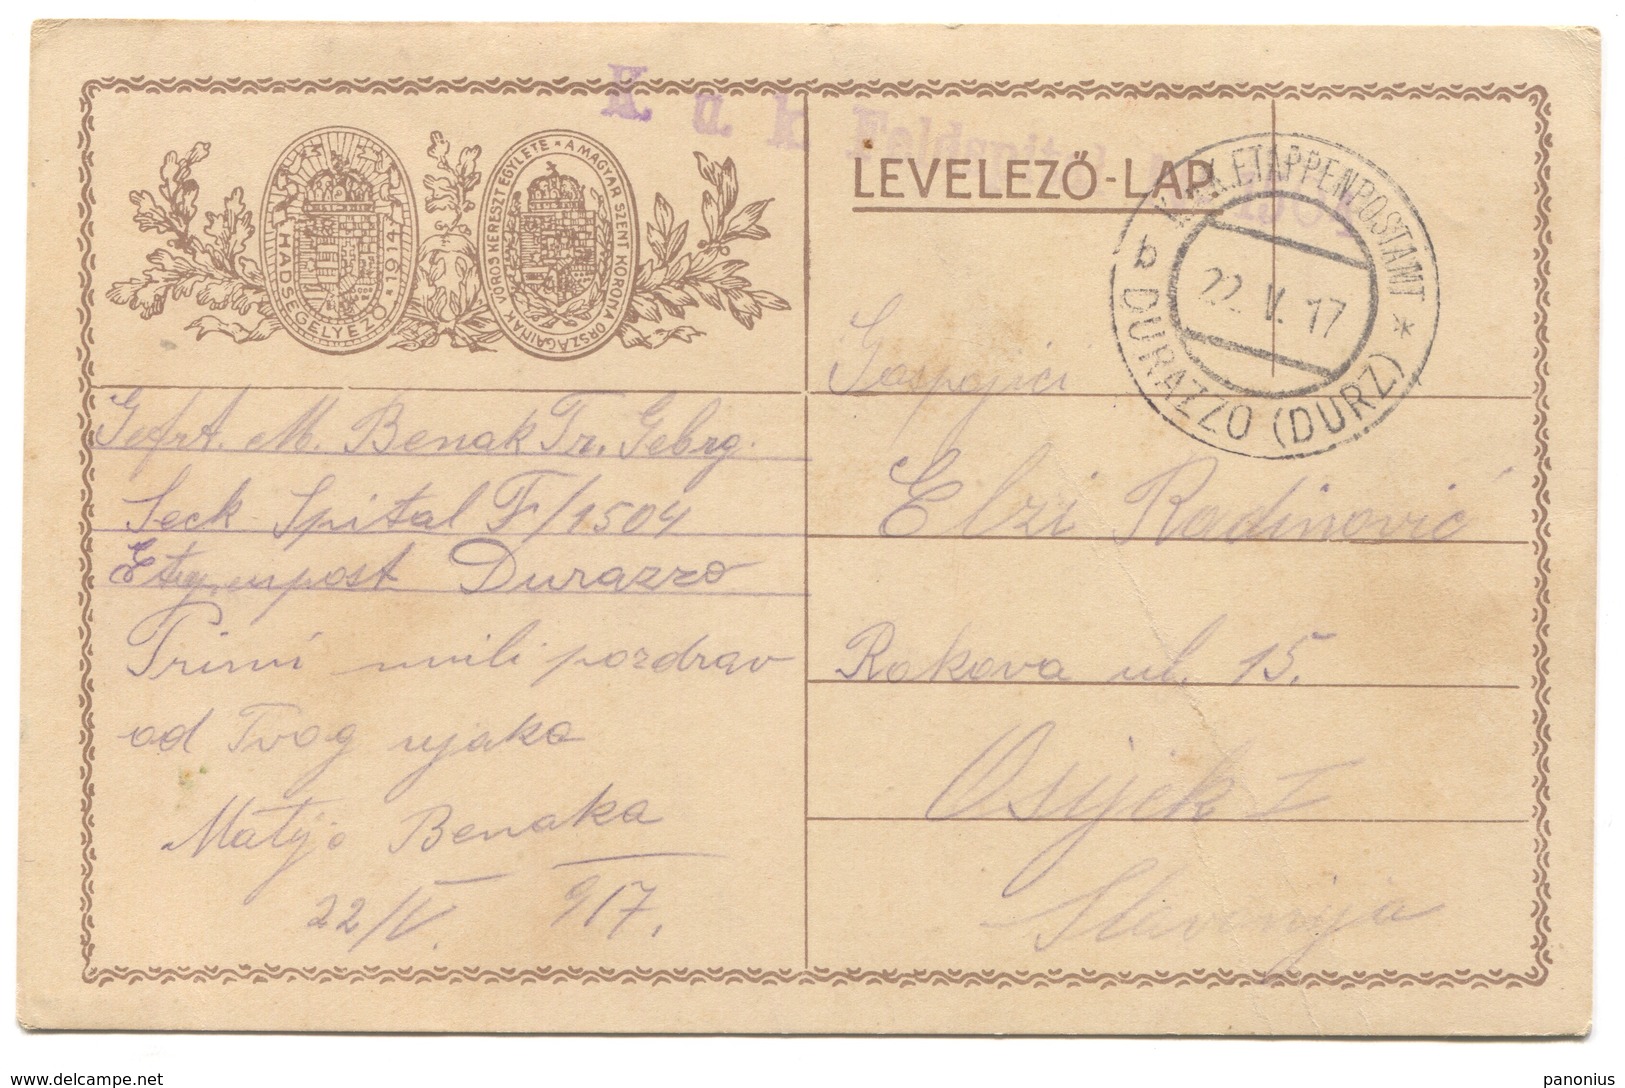 K. u. k.
LEVELEZŐ-LAP
HADSEGÉLYEZŐ * 1914
A MAGYAR SZENT KORONA ORSZÁGAINAK VÖRÖS KERESZT EGYLETE
K.u.K. ETAPPENPOSTAMT *
b
22. V. 17
DURAZZO (DURZ)
Gefrt. M. Benak Tr. Gebrg.
Seck Spital F/1504
Etappenpost Durazzo
Primi mili pozdrav
od Tvog ujaka
Matije Benaka
22/V. 917.
Gospojici
Elzi Radinović
Rokova ul. 15.
Osijek I
Slavonija
www.delcampe.net
panonius